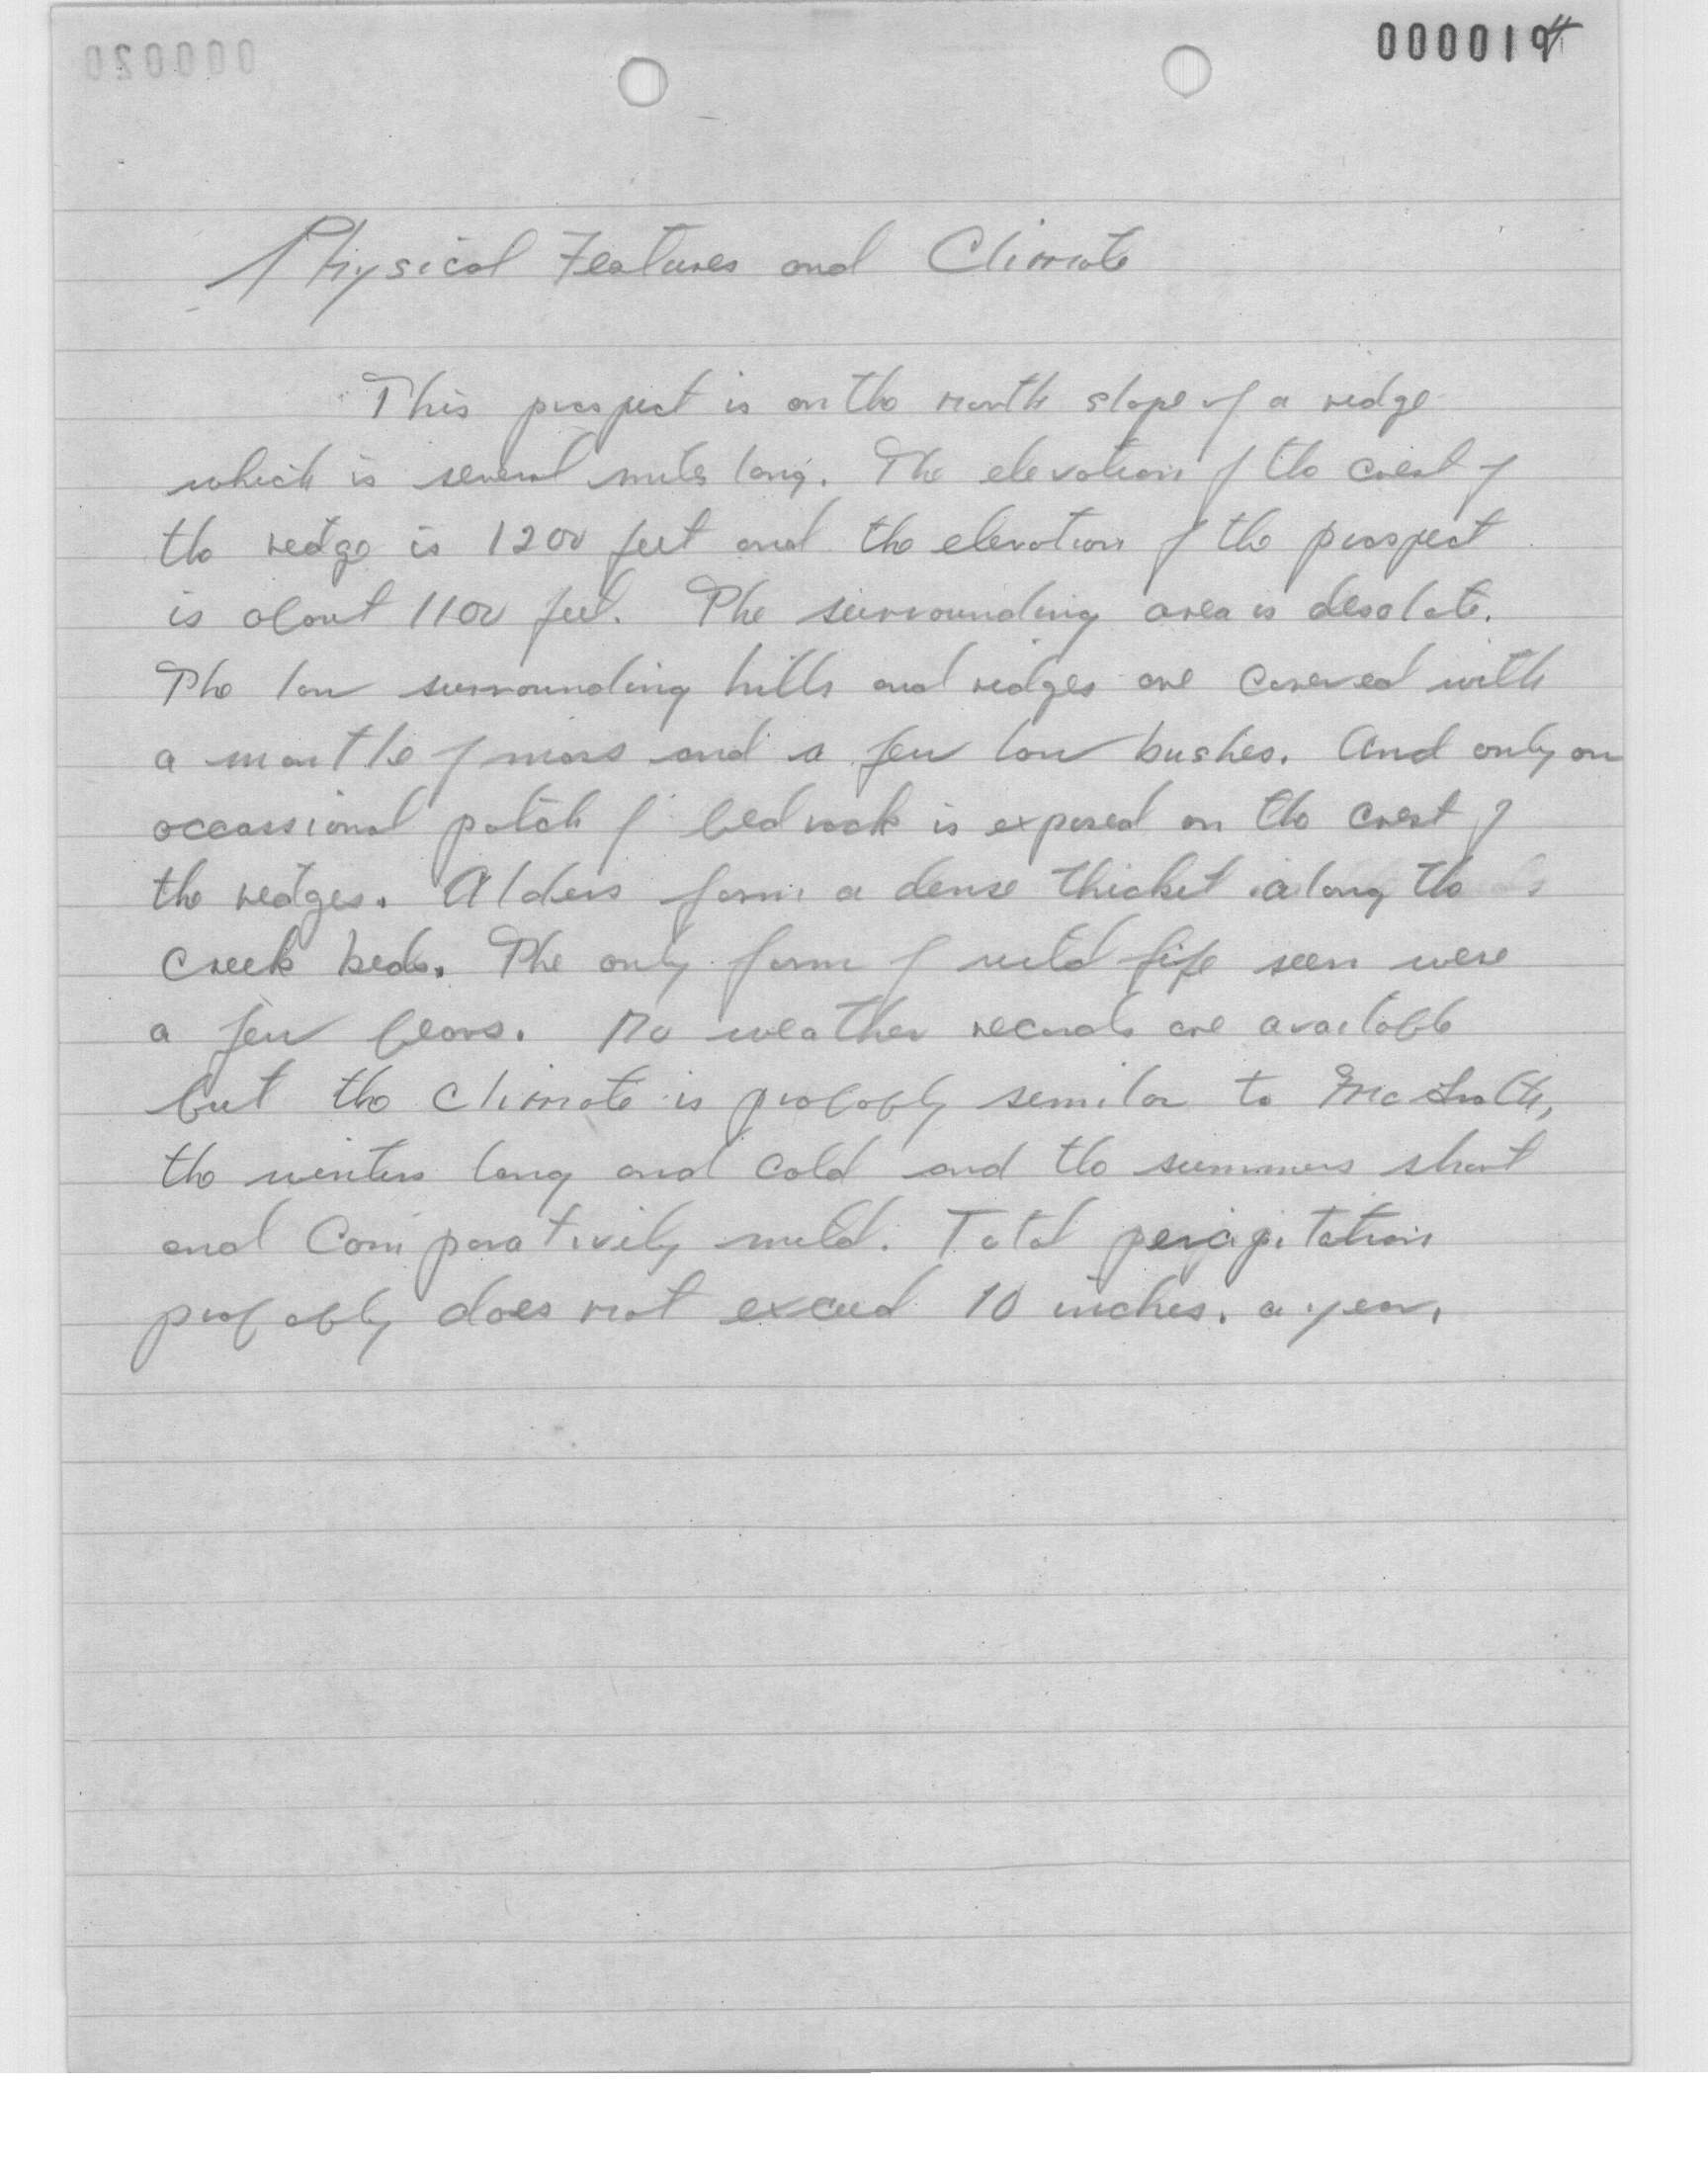 000019
Physical Features and Climate
This prospect is on the north slope of a ridge
which is several miles long. The elevation of the crest of
the ridge is 1200 feet and the elevation of the prospect
is about 1100 feet. The surrounding area is desolate.
The low surrounding hills and ridges are covered with
a mantle of moss and a few low bushes. And only an
occassional patch of bedrock is exposed on the crest of
the ridges. Alders form a dense thicket along the
creek beds. The only form of wild life seen were
a few bears. No weather records are available
but the climate is probably similar to McGrath,
the winters long and cold and the summers short
and comparatively mild. Total percipitation
probably does not exceed 10 inches. a year.